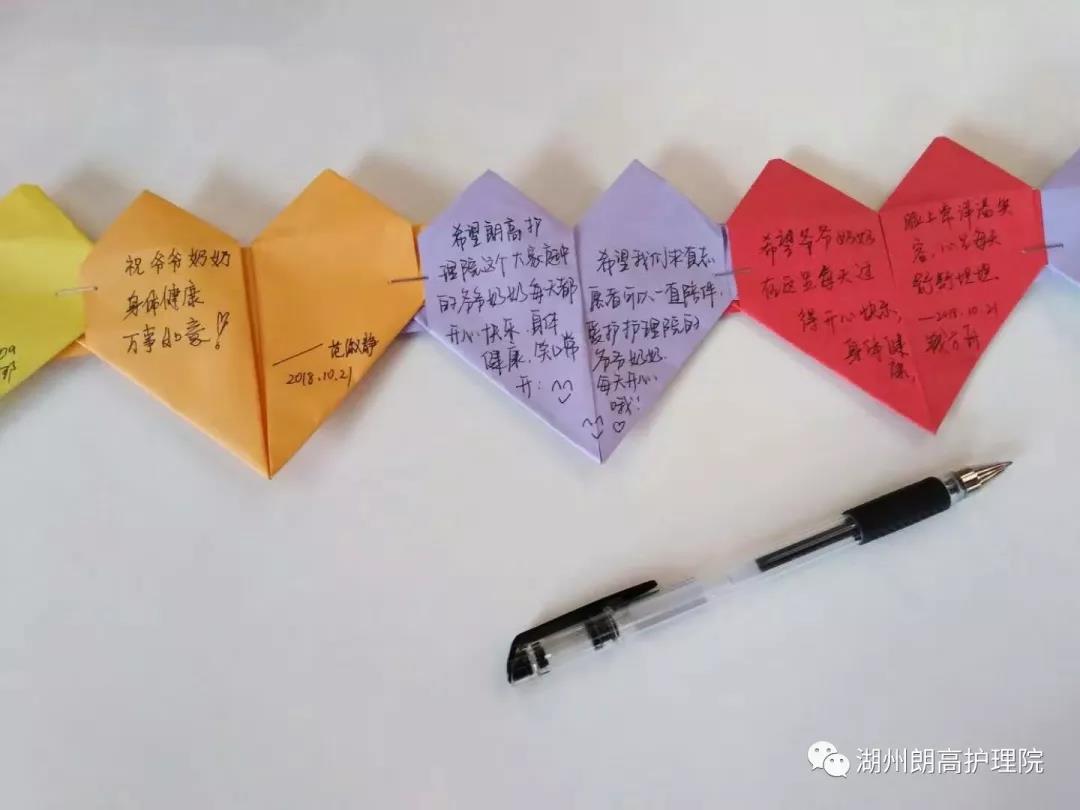 祝爷爷奶奶
身体健康
万事如意!
——范淑静
2018.10.21
希望朗高护
理院这个大家庭中
的爷爷奶奶每天都
开心快乐,身体
健康,笑口常
开:
希望我们来自志
愿者可以一直陪伴,
爱护护理院的
爷爷奶奶.
每天开心
哦!
希望爷爷奶奶
在这里每天过
得开心快乐,
身体健
康,
脸上常洋溢笑
容,心里每天
舒舒坦坦.
—2018.10.21
湖州朗高护理院